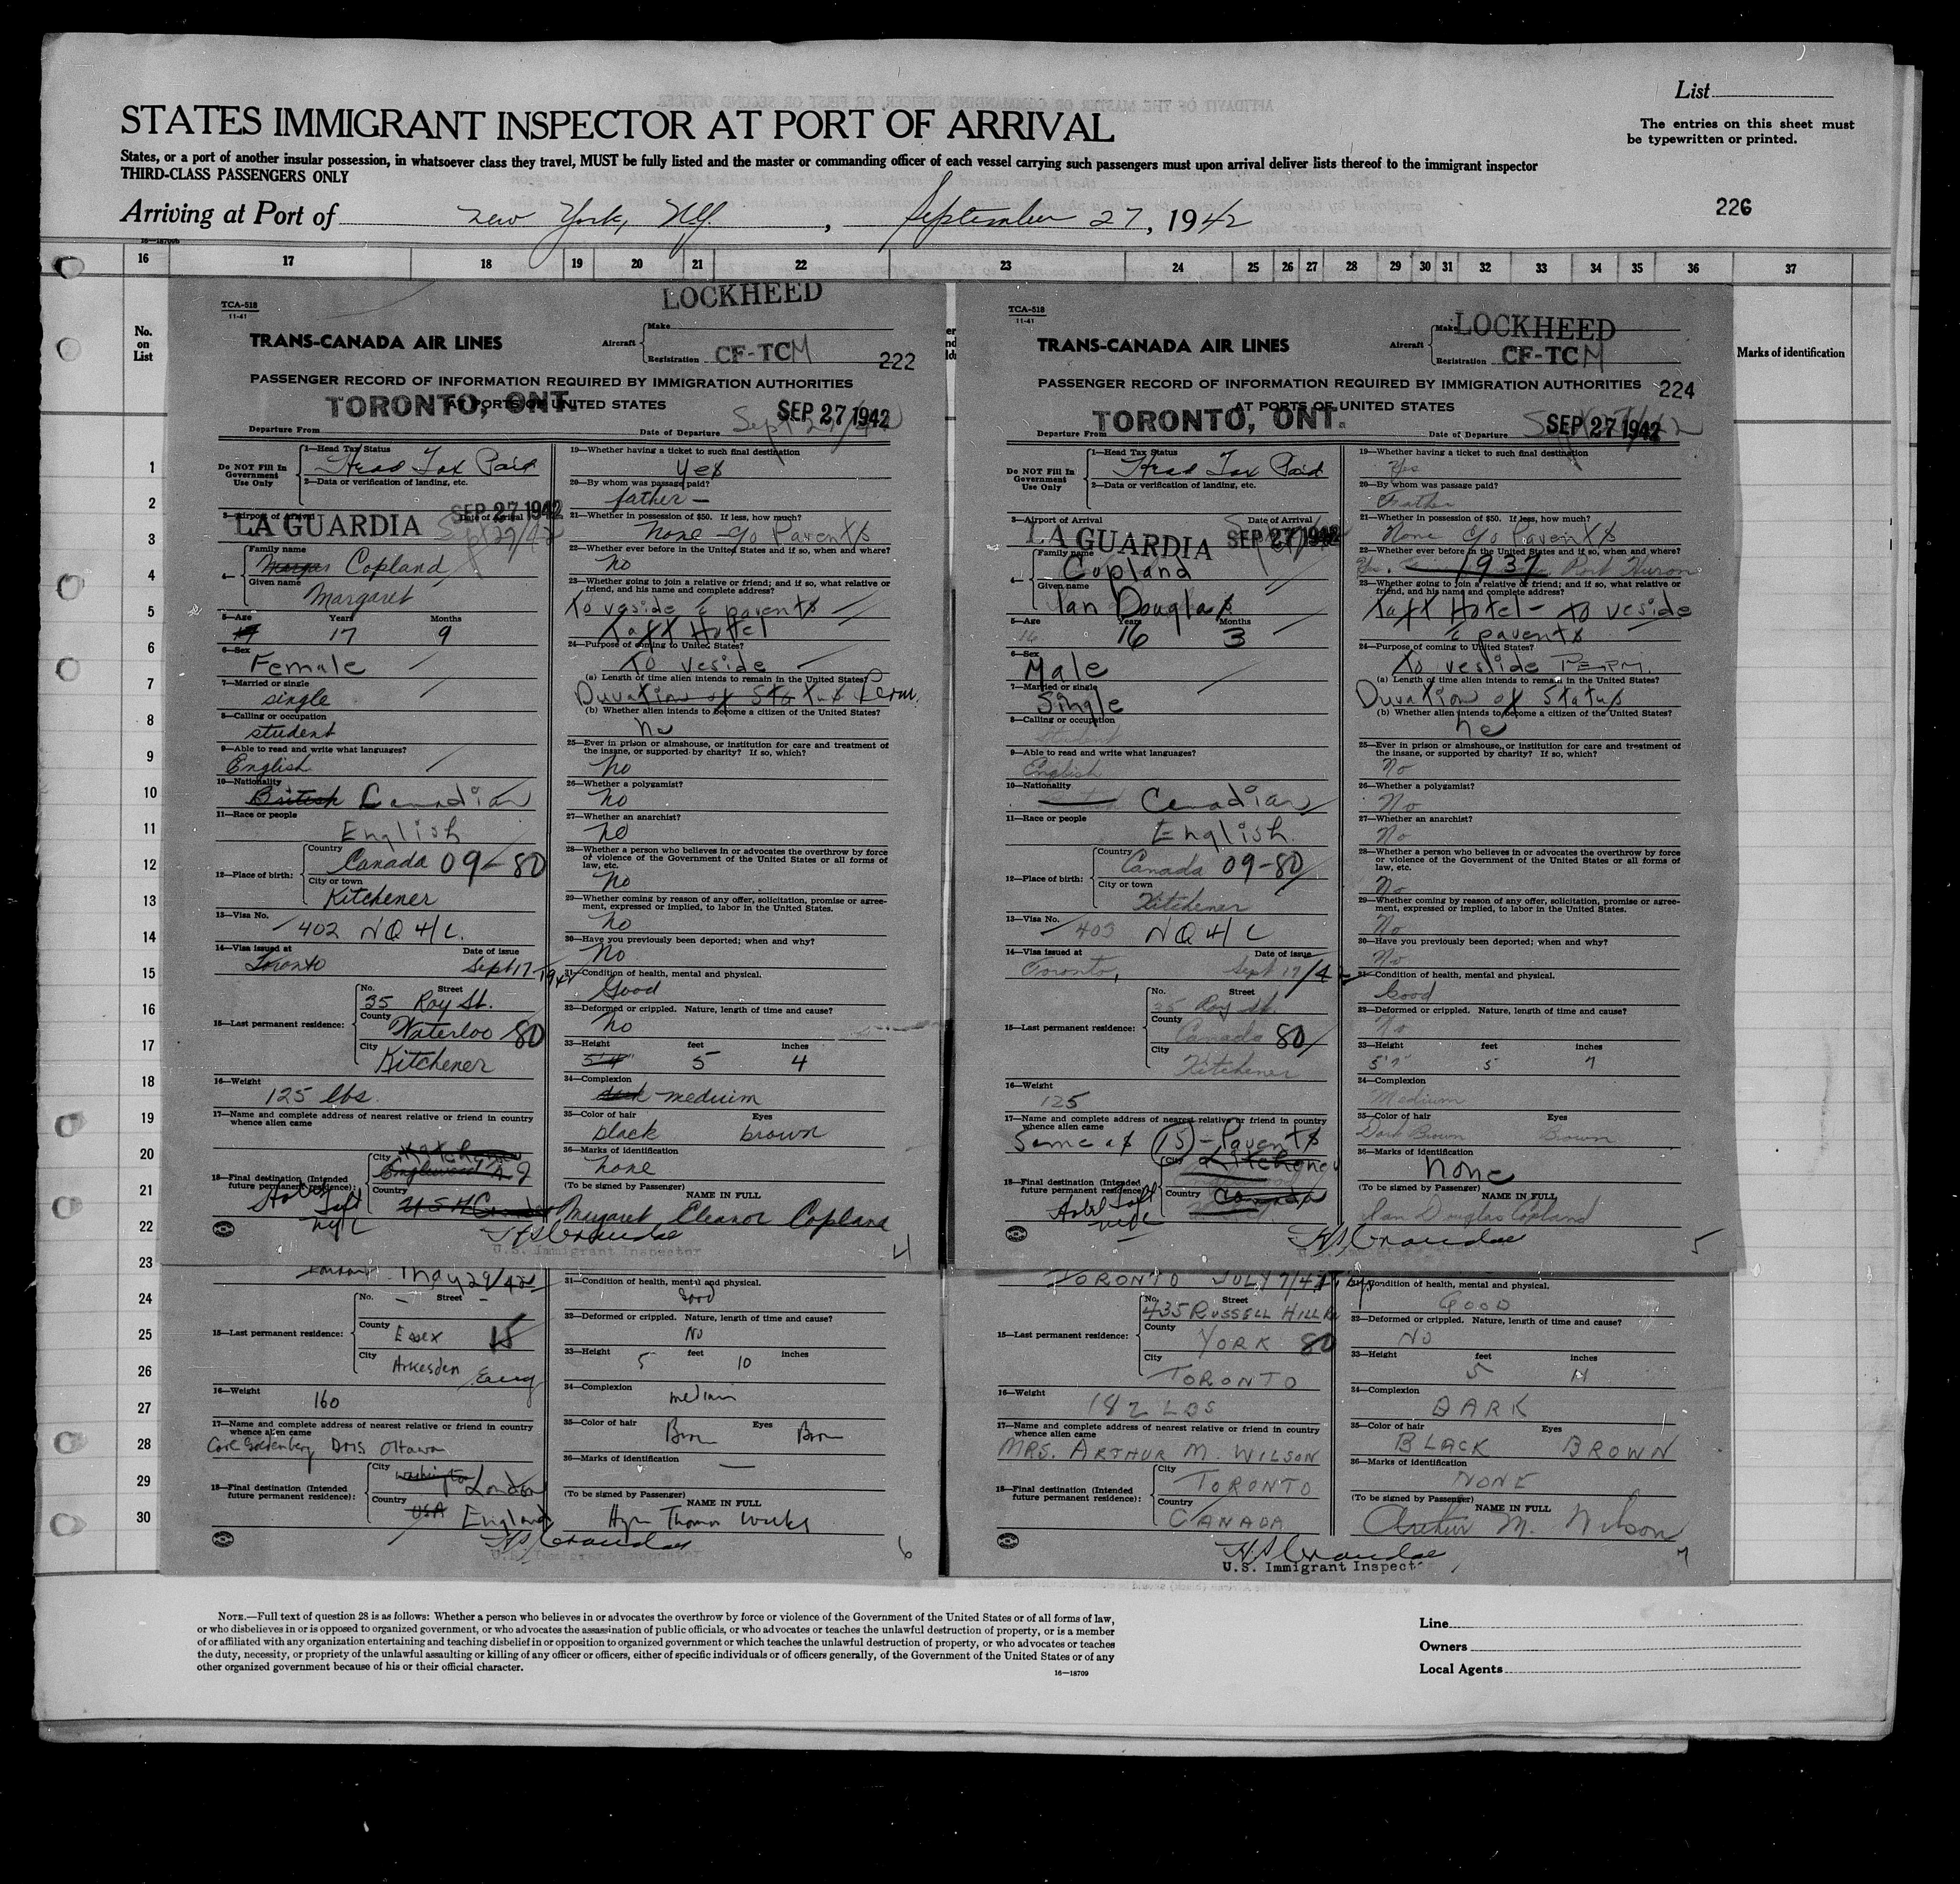 List
STATES IMMIGRANT INSPECTOR AT PORT OF ARRIVAL
The entries on this sheet must
be typewritten or printed.
States, or a port of another insular possession, in whatsoever class they travel, MUST be fully listed and the master or commanding officer of each vessel carrying such passengers must upon arrival deliver lists thereof to the immigrant inspector
THIRD-CLASS PASSENGERS ONLY
226
Arriving at Port of New York, NY. , September 27, 1942
16 17 18 19 20 21 22 23 24 25 26 27 28 29 30 31 32 33 34 35 36 37
No. on List
Marks of identification
1
2
3
4
5
6
7
8
9
10
11
12
13
14
15
16
17
18
19
20
21
22
23
24
25
26
27
28
29
30
TCA-518
11-41
LOCKHEED
TRANS-CANADA AIR LINES
Aircraft Make
Registration CF-TCM
222
PASSENGER RECORD OF INFORMATION REQUIRED BY IMMIGRATION AUTHORITIES
AT PORTS OF UNITED STATES
TORONTO, ONT.
SEP 27 1942
Departure From
Date of Departure Sept 27/42
Do NOT Fill In Government Use Only
1—Head Tax Status
Head Tax Paid
2—Data or verification of landing, etc.
3—Airport of Arrival
LA GUARDIA
Date of Arrival
SEP 27 1942
Sept 27/42
4— Family name
Copland
Given name
Margaret
5—Age Years Months
17 9
6—Sex
Female
7—Married or single
single
8—Calling or occupation
student
9—Able to read and write what languages?
English
10—Nationality
British Canadian
11—Race or people
English
12—Place of birth:
Country
Canada 09-80
City or town
Kitchener
13—Visa No.
402 NQ 4/c.
14—Visa issued at Date of issue
Toronto Sept 17-1942
15—Last permanent residence:
No. Street
35 Roy St.
County
Waterloo 80
City
Kitchener
16—Weight
125 lbs.
17—Name and complete address of nearest relative or friend in country
whence alien came
18—Final destination (Intended
future permanent residence):
City
Kitchener
Englewood N J
Country
Hotel Taft
nyc
19—Whether having a ticket to such final destination
yes
20—By whom was passage paid?
father —
21—Whether in possession of $50. If less, how much?
None - c/o Parents
22—Whether ever before in the United States and if so, when and where?
no
23—Whether going to join a relative or friend; and if so, what relative or
friend, and his name and complete address?
To reside c parents
Taft Hotel
24—Purpose of coming to United States?
To reside
(a) Length of time alien intends to remain in the United States?
Duration of Status Perm.
(b) Whether alien intends to become a citizen of the United States?
no
25—Ever in prison or almshouse, or institution for care and treatment of
the insane, or supported by charity? If so, which?
no
26—Whether a polygamist?
no
27—Whether an anarchist?
no
28—Whether a person who believes in or advocates the overthrow by force
or violence of the Government of the United States or all forms of
law, etc.
no
29—Whether coming by reason of any offer, solicitation, promise or agree-
ment, expressed or implied, to labor in the United States.
no
30—Have you previously been deported; when and why?
no
31—Condition of health, mental and physical.
Good
32—Deformed or crippled. Nature, length of time and cause?
no
33—Height feet inches
5'4" 5 4
34—Complexion
medium
35—Color of hair Eyes
black brown
36—Marks of identification
none
(To be signed by Passenger)
NAME IN FULL
Margaret Eleanor Copland
U.S. Immigrant Inspector
4
TCA-518
11-41
TRANS-CANADA AIR LINES
Aircraft Make LOCKHEED
Registration CF-TCM
PASSENGER RECORD OF INFORMATION REQUIRED BY IMMIGRATION AUTHORITIES
224
AT PORTS OF UNITED STATES
TORONTO, ONT.
SEP 27 1942
Departure From
Date of Departure
Do NOT Fill In Government Use Only
1—Head Tax Status
Head Tax Paid
2—Data or verification of landing, etc.
3—Airport of Arrival
LA GUARDIA
Date of Arrival
SEP 27 1942
Family name
Copland
Given name
Ian Douglas
5—Age Years Months
16 16 3
6—Sex
Male
7—Married or single
Single
8—Calling or occupation
Student
9—Able to read and write what languages?
English
10—Nationality
Canadian
11—Race or people
English
12—Place of birth:
Country
Canada 09-80
City or town
Kitchener
13—Visa No.
403 NQ 4/c
14—Visa issued at Date of issue
Toronto, Sept 17/42
15—Last permanent residence:
No. Street
35 Roy St.
County
Canada 80
City
Kitchener
16—Weight
125
17—Name and complete address of nearest relative or friend in country
whence alien came
Same as (15) - Parents
18—Final destination (Intended
future permanent residence):
City
Kitchener
Country
Canada
Hotel Taft
nyc
19—Whether having a ticket to such final destination
Yes
20—By whom was passage paid?
Father
21—Whether in possession of $50. If less, how much?
None c/o Parents
22—Whether ever before in the United States and if so, when and where?
Yes. 1937 Port Huron
23—Whether going to join a relative or friend; and if so, what relative or
friend, and his name and complete address?
Taft Hotel - to reside
c parents
24—Purpose of coming to United States?
To reside PERM.
(a) Length of time alien intends to remain in the United States?
Duration of Status
(b) Whether alien intends to become a citizen of the United States?
no
25—Ever in prison or almshouse, or institution for care and treatment of
the insane, or supported by charity? If so, which?
No
26—Whether a polygamist?
No
27—Whether an anarchist?
No
28—Whether a person who believes in or advocates the overthrow by force
or violence of the Government of the United States or all forms of
law, etc.
No
29—Whether coming by reason of any offer, solicitation, promise or agree-
ment, expressed or implied, to labor in the United States.
No
30—Have you previously been deported; when and why?
No
31—Condition of health, mental and physical.
Good
32—Deformed or crippled. Nature, length of time and cause?
No
33—Height feet inches
5'7" 5 7
34—Complexion
Medium
35—Color of hair Eyes
Dark Brown Brown
36—Marks of identification
none
(To be signed by Passenger)
NAME IN FULL
Ian Douglas Copland
5
May 29/42
15—Last permanent residence:
No. — Street —
County
Essex 15
City
Arkesden Eng
16—Weight
160
17—Name and complete address of nearest relative or friend in country
whence alien came
Carl Goldenberg DMS Ottawa
18—Final destination (Intended
future permanent residence):
City
Washington London
Country
USA England
31—Condition of health, mental and physical.
Good
32—Deformed or crippled. Nature, length of time and cause?
No
33—Height feet inches
5 10
34—Complexion
medium
35—Color of hair Eyes
Brn Brn
36—Marks of identification
—
(To be signed by Passenger)
NAME IN FULL
Thomas Weeks
U.S. Immigrant Inspector
6
TORONTO JULY 7/42
15—Last permanent residence:
No. Street
435 RUSSELL HILL Rd
County
YORK 80
City
TORONTO
16—Weight
182 LBS
17—Name and complete address of nearest relative or friend in country
whence alien came
MRS. ARTHUR M. WILSON
18—Final destination (Intended
future permanent residence):
City
TORONTO
Country
CANADA
31—Condition of health, mental and physical.
GOOD
32—Deformed or crippled. Nature, length of time and cause?
NO
33—Height feet inches
5 11
34—Complexion
DARK
35—Color of hair Eyes
BLACK BROWN
36—Marks of identification
NONE
(To be signed by Passenger)
NAME IN FULL
Arthur M. Wilson
U.S. Immigrant Inspect
7
NOTE.—Full text of question 28 is as follows: Whether a person who believes in or advocates the overthrow by force or violence of the Government of the United States or of all forms of law,
or who disbelieves in or is opposed to organized government, or who advocates the assassination of public officials, or who advocates or teaches the unlawful destruction of property, or is a member
of or affiliated with any organization entertaining and teaching disbelief in or opposition to organized government or which teaches the unlawful destruction of property, or who advocates or teaches
the duty, necessity, or propriety of the unlawful assaulting or killing of any officer or officers, either of specific individuals or of officers generally, of the Government of the United States or of any
other organized government because of his or their official character.
16—18709
Line
Owners
Local Agents